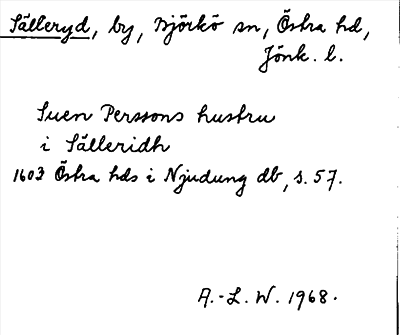 Sälleryd, by, Björkö sn, Östra hd,
Jönk. l.
Suen Perssons hustru
i Sälleridh
1603 Östra hds i Njudung db, s. 57.
A.-L. W. 1968.